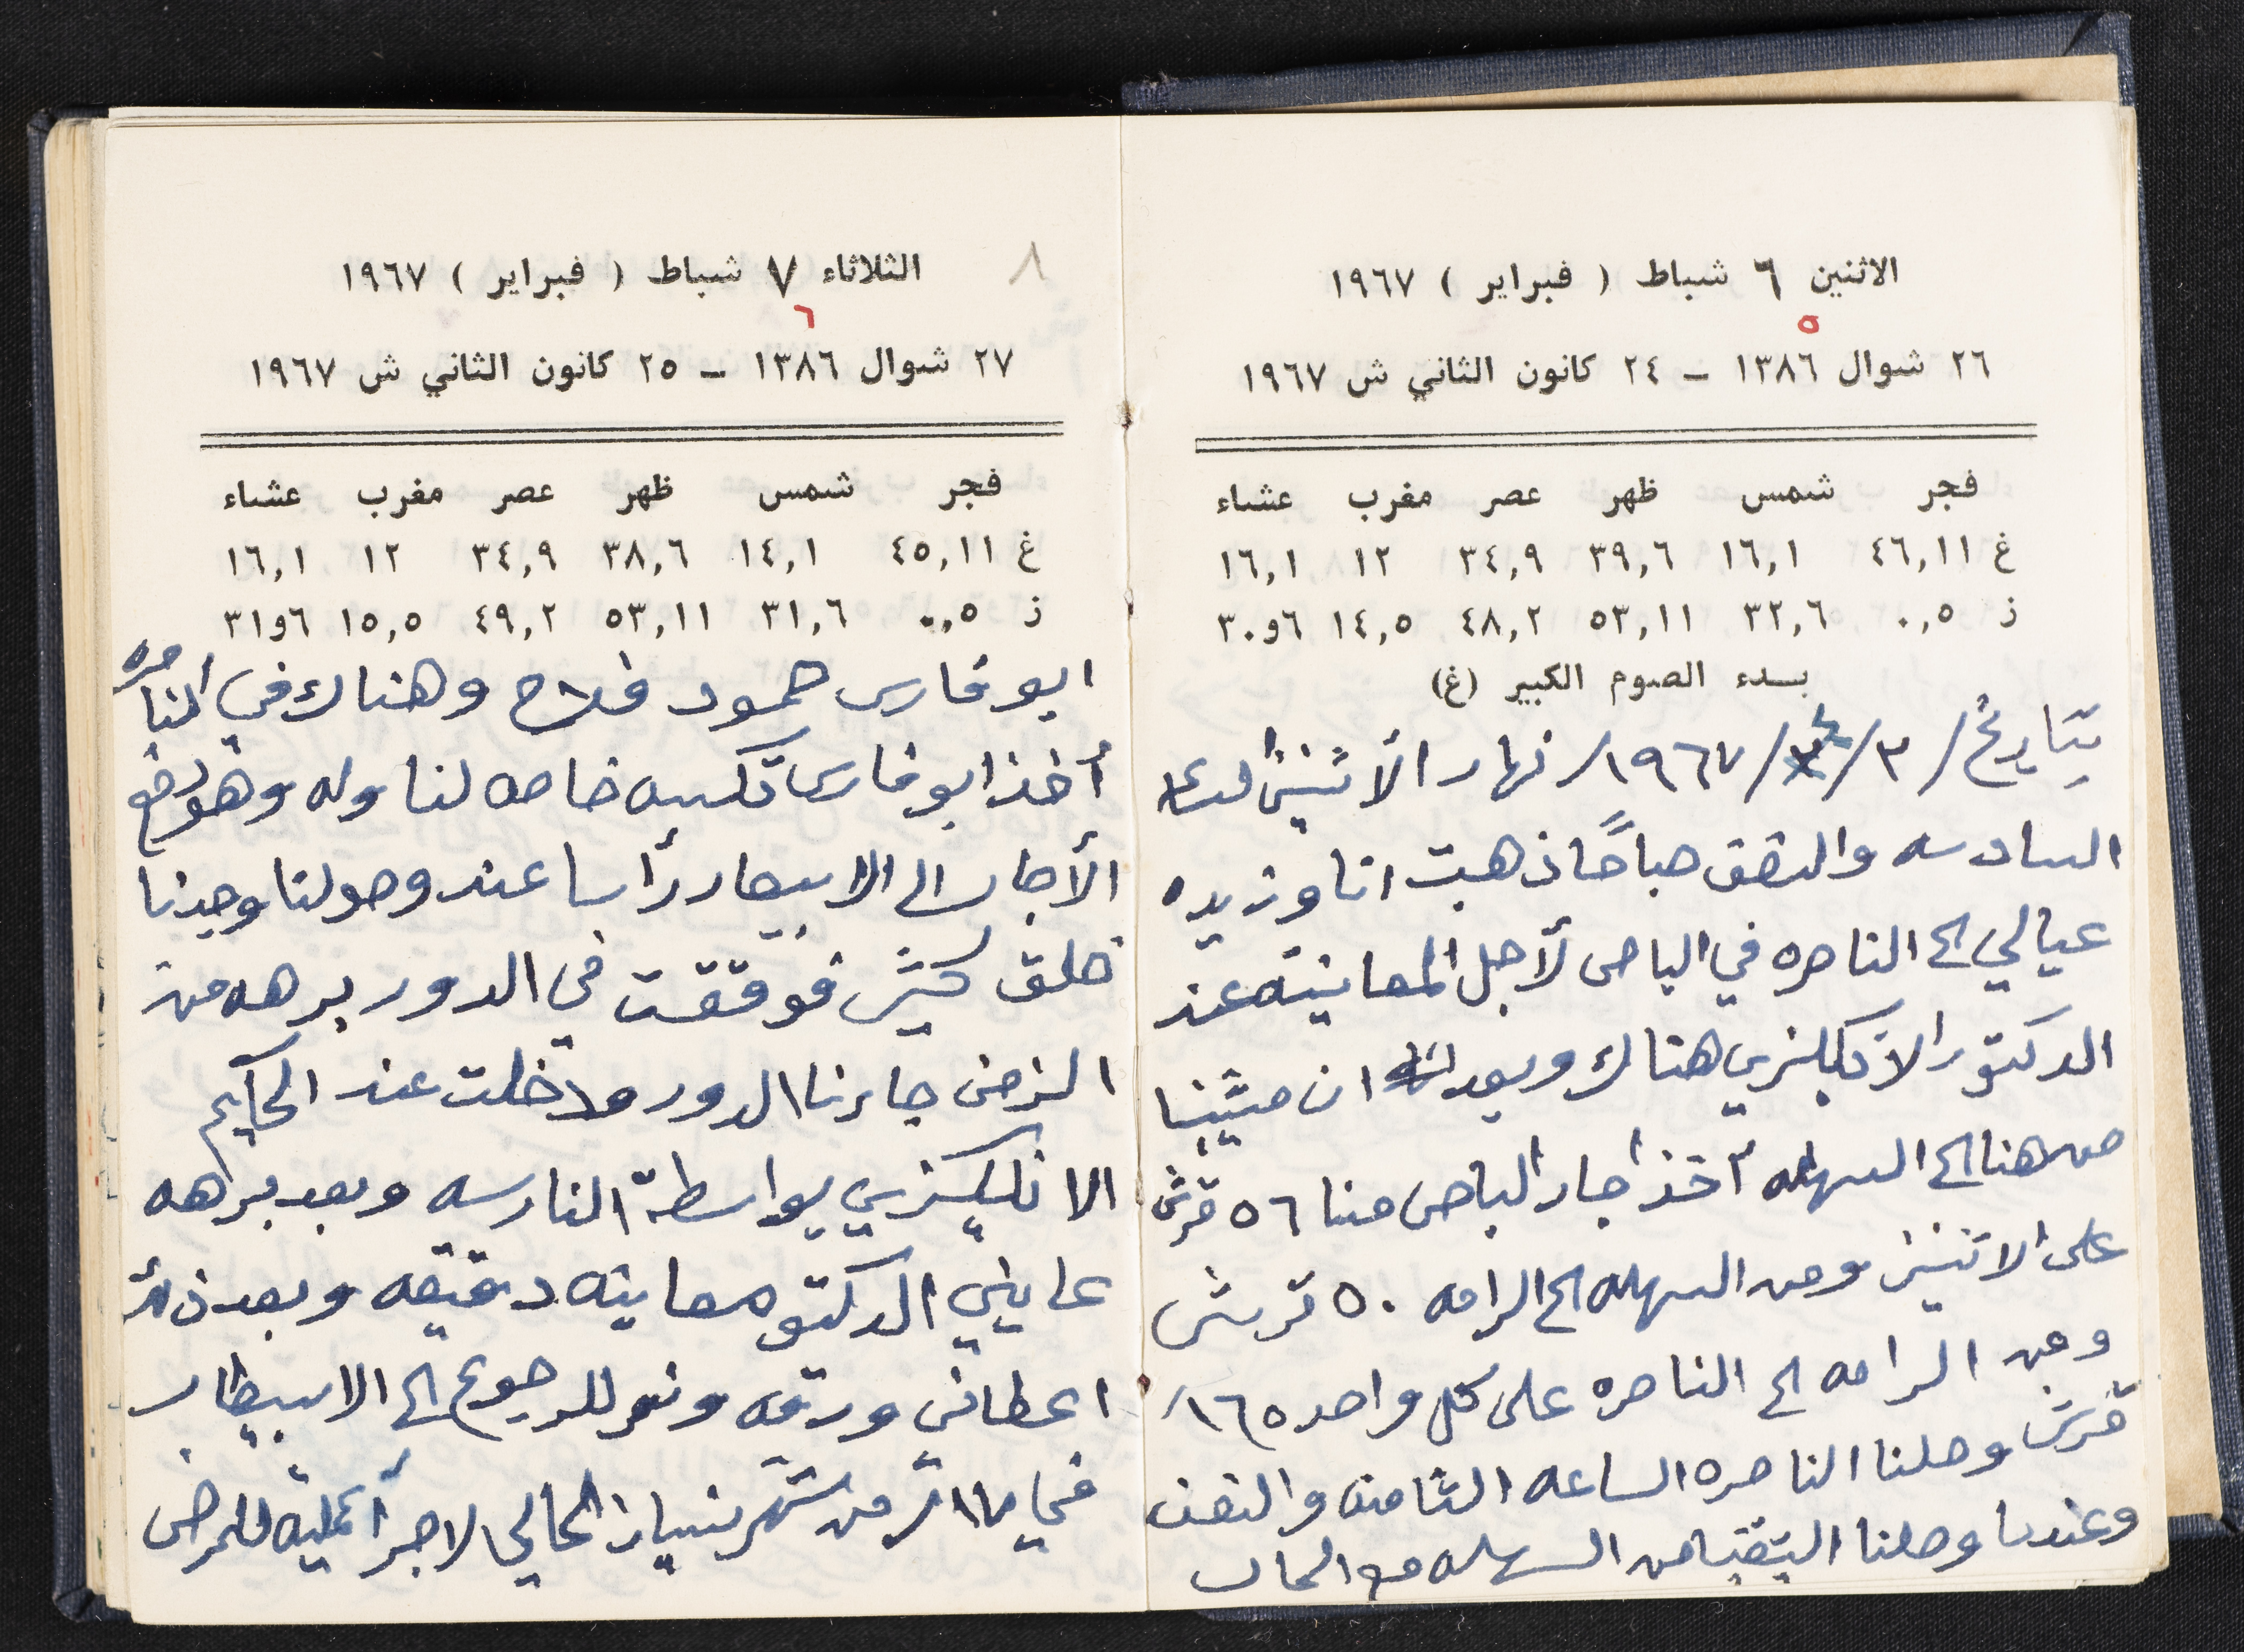 الاثنين ٦ شباط ( فبراير ) ١٩٦٧
٥
٢٦ شوال ١٣٨٦ – ٢٤ كانون الثاني ش ١٩٦٧
فجر شمس ظهر عصر مغرب عشاء
غ ٤٦,١١ ١٦,١ ٣٩,٦ ٣٤,٩ ١٢ ١٦,١
ز ٠,٥ ٣٢,٦ ٥٣,١١ ٤٨,٢ ١٤,٥ ٦و٣٠
بدء الصوم الكبير (غ)
بتاريخ /٣/٤/١٩٦٧/ نهار الأثنين الساعه
السادسه والنصف صباحًا ذهبت انا وزيده
عيالي الى الناصره في الباص لأجل المعاينه عند
الدكتور الانكليزي هناك وبعد ان مشينا
من هنا الى السهله أخذ اجار الباص منا ٥٦ قرش
على الاثنين ومن السهله الى الرامه ٥٠ قرش
ومن الرامه الى الناصره على كل واحد ١٦٥/
قرش وصلنا الناصره الساعه الثامنه والنصف
وعندما وصلنا التقينا من السهله مع الحاف
٨
الثلاثاء ٧ شباط ( فبراير ) ١٩٦٧
٦
٢٧ شوال ١٣٨٦ – ٢٥ كانون الثاني ش ١٩٦٧
فجر شمس ظهر عصر مغرب عشاء
غ ٤٥,١١ ١٤,١ ٣٨,٦ ٣٤,٩ ١٢ ١٦,١
ز ٠,٥ ٣١,٦ ٥٣,١١ ٤٩,٢ ١٥,٥ ٦و٣١
ابو فارس حمود فلاح وهناك في الناصره
أخذ ابو فارس تكسه خاصه لنا وله وهو دفع
الأجار الى الاسبيطار رأسا عند وصولنا وجدنا
خلق كثير فوقفت في الدور برهه من
الزمن جاءنا الدور ودخلت عند الحكيم
الانكليزي بواسطة النارسه وبعد برهه
عايني الدكتور معاينه دقيقه وبعد ذلك
اعطاني ورقه ونمر للرجوع الى الاسبيطار
في من شهر نيسان الحالي لاجرأ عمليه للمرض